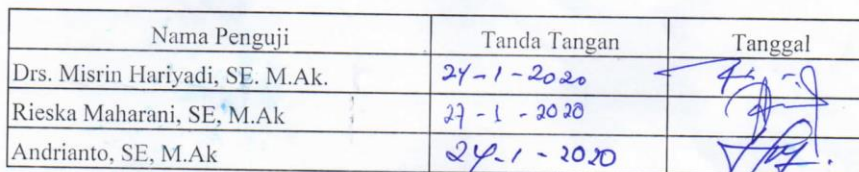 Nama Penguji Tanda Tangan Tanggal
Drs. Misrin Hariyadi, SE. M.Ak. 24-1-2020
Rieska Maharani, SE, M.Ak 27-1-2020
Andrianto, SE, M.Ak 24-1-2020